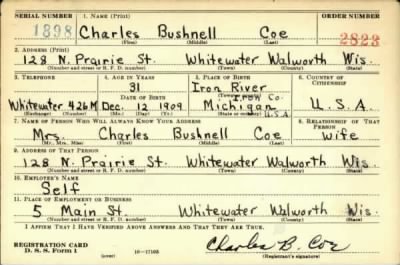 SERIAL NUMBER 1. NAME (Print) ORDER NUMBER
1898 Charles Bushnell Coe 2823
(First) (Middle) (Last)
2. ADDRESS (Print)
128 N. Prairie St. Whitewater Walworth Wis.
(Number and street or R. F. D. number) (Town) (County) (State)
3. TELEPHONE 4. AGE IN YEARS 5. PLACE OF BIRTH 6. COUNTRY OF CITIZENSHIP
31 Iron River
DATE OF BIRTH Iron Co.
Whitewater 426M Dec. 12 1909 Michigan U.S.A.
U.S.A
(Exchange) (Number) (Mo.) (Day) (Yr.)
7. NAME OF PERSON WHO WILL ALWAYS KNOW YOUR ADDRESS 8. RELATIONSHIP OF THAT PERSON
Mrs. Charles Bushnell Coe Wife
(Mr., Mrs., Miss) (First) (Middle) (Last)
9. ADDRESS OF THAT PERSON
128 N. Prairie St. Whitewater Walworth Wis.
(Number and street or R. F. D. number) (Town) (County) (State)
10. EMPLOYER'S NAME
Self
11. PLACE OF EMPLOYMENT OR BUSINESS
5 Main St. Whitewater Walworth Wis.
(Number and street or R. F. D. number) (Town) (County) (State)
I AFFIRM THAT I HAVE VERIFIED ABOVE ANSWERS AND THAT THEY ARE TRUE.
REGISTRATION CARD
D. S. S. Form 1 (over) 16-17105 Charles B. Coe
(Registrant's signature)